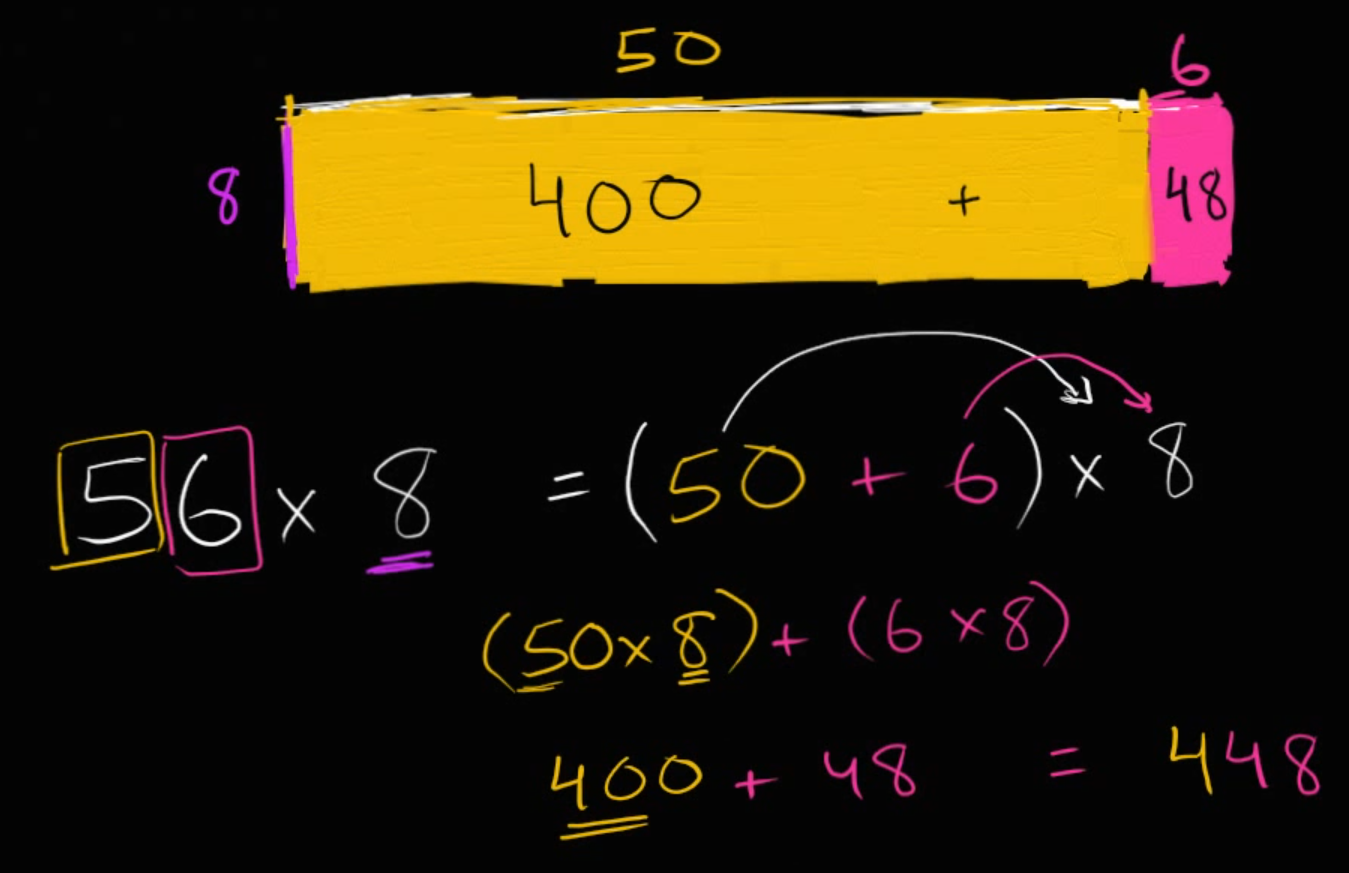 50 6
8 400 + 48
56 × 8 = (50 + 6) × 8
(50 × 8) + (6 × 8)
400 + 48 = 448